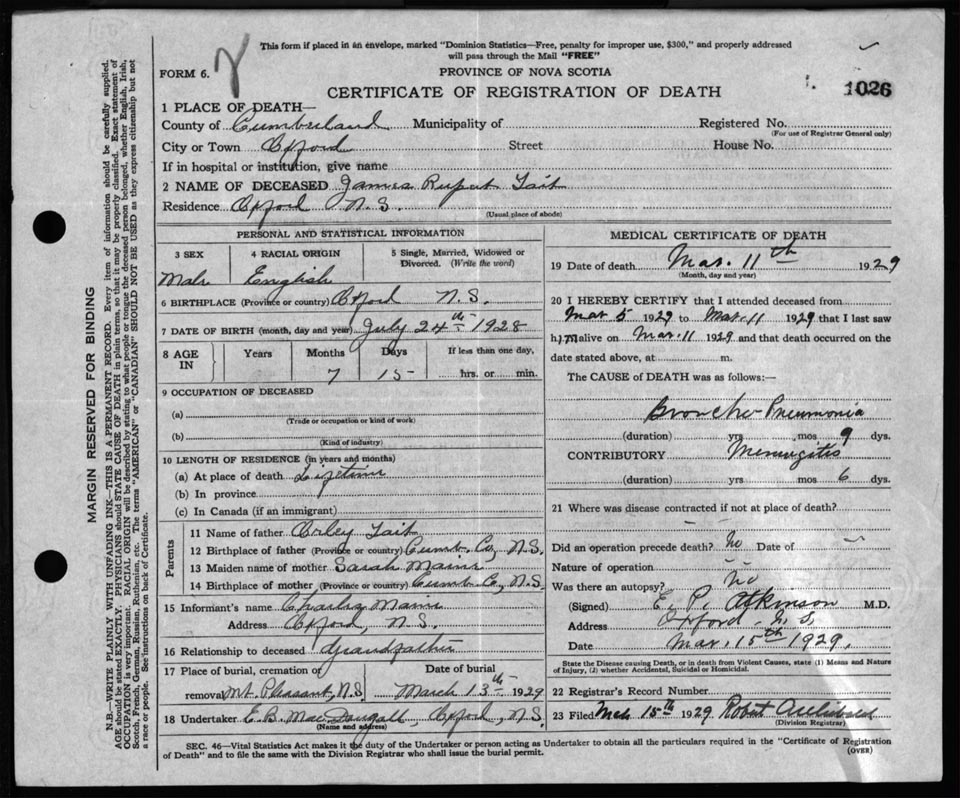 This form if placed in an envelope, marked "Dominion Statistics—Free, penalty for improper use, $300," and properly addressed
will pass through the Mail "FREE"
FORM 6.
PROVINCE OF NOVA SCOTIA
CERTIFICATE OF REGISTRATION OF DEATH
1026
1 PLACE OF DEATH—
County of Cumberland Municipality of Registered No.
(For use of Registrar General only)
City or Town Oxford Street House No.
If in hospital or institution, give name
2 NAME OF DECEASED James Rupert Tait
Residence Oxford N.S.
(Usual place of abode)
PERSONAL AND STATISTICAL INFORMATION
3 SEX 4 RACIAL ORIGIN 5 Single, Married, Widowed or
Divorced. (Write the word)
Male English
6 BIRTHPLACE (Province or country) Oxford N.S.
7 DATE OF BIRTH (month, day and year) July 24th 1928
8 AGE IN Years Months Days If less than one day,
7 15 hrs. or min.
9 OCCUPATION OF DECEASED
(a)
(Trade or occupation or kind of work)
(b)
(Kind of industry)
10 LENGTH OF RESIDENCE (in years and months)
(a) At place of death Lifetime
(b) In province
(c) In Canada (if an immigrant)
Parents
11 Name of father Orley Tait
12 Birthplace of father (Province or country) Cumb. Co, N.S.
13 Maiden name of mother Sarah
14 Birthplace of mother (Province or country) Cumb Co, N.S.
15 Informant's name
Address Oxford, N.S.
16 Relationship to deceased Grandfather
17 Place of burial, cremation or Date of burial
removal Mt. Pleasant, N.S. March 13th 1929
18 Undertaker E. B. MacDougall, Oxford, N.S.
(Name and address)
MEDICAL CERTIFICATE OF DEATH
19 Date of death Mar. 11th 1929
(Month, day and year)
20 I HEREBY CERTIFY that I attended deceased from
Mar 5 1929 to Mar. 11 1929 that I last saw
h im alive on Mar. 11 1929 and that death occurred on the
date stated above, at m.
The CAUSE of DEATH was as follows:—
Broncho Pneumonia
(duration) yrs mos 9 dys.
CONTRIBUTORY Meningitis
(duration) yrs mos 6 dys.
21 Where was disease contracted if not at place of death?
Did an operation precede death? No Date of
Nature of operation
Was there an autopsy? No
(Signed) E. P. Atkinson M.D.
Address Oxford N.S.
Date Mar. 15th 1929.
State the Disease causing Death, or in death from Violent Causes, state (1) Means and Nature
of Injury, (2) whether Accidental, Suicidal or Homicidal.
22 Registrar's Record Number
23 Filed Mch 15th 1929 Robert
(Division Registrar)
SEC. 46—Vital Statistics Act makes it the duty of the Undertaker or person acting as Undertaker to obtain all the particulars required in the "Certificate of Registration
of Death" and to file the same with the Division Registrar who shall issue the burial permit.
(OVER)
MARGIN RESERVED FOR BINDING
N.B.—WRITE PLAINLY WITH UNFADING INK—THIS IS A PERMANENT RECORD. Every item of information should be carefully supplied.
AGE should be stated EXACTLY. PHYSICIANS should STATE CAUSE OF DEATH in plain terms, so that it may be properly classified. Exact statement of
OCCUPATION is very important. RACIAL ORIGIN will be described by stating to what people or tongue the deceased person belonged, whether English, Irish,
Scotch, French, German, Russian, Ruthenian, etc. The terms "AMERICAN" or "CANADIAN" SHOULD NOT BE USED as they express citizenship but not
a race or people. See instructions on back of Certificate.